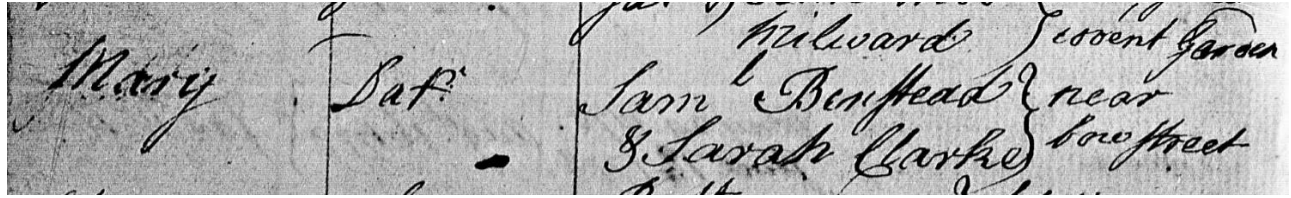 Milward } Covent Garden
Mary Dat^r Sam^l Benstead } near
& Sarah Clarke } bow street